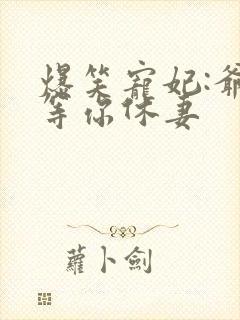 爆笑寵妃:爺
等你休妻
蘿卜劍